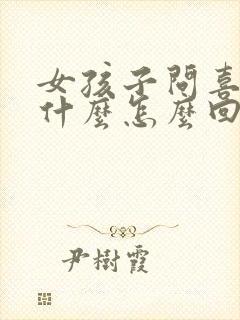 女孩子問喜
什麼怎麼回
尹樹霞